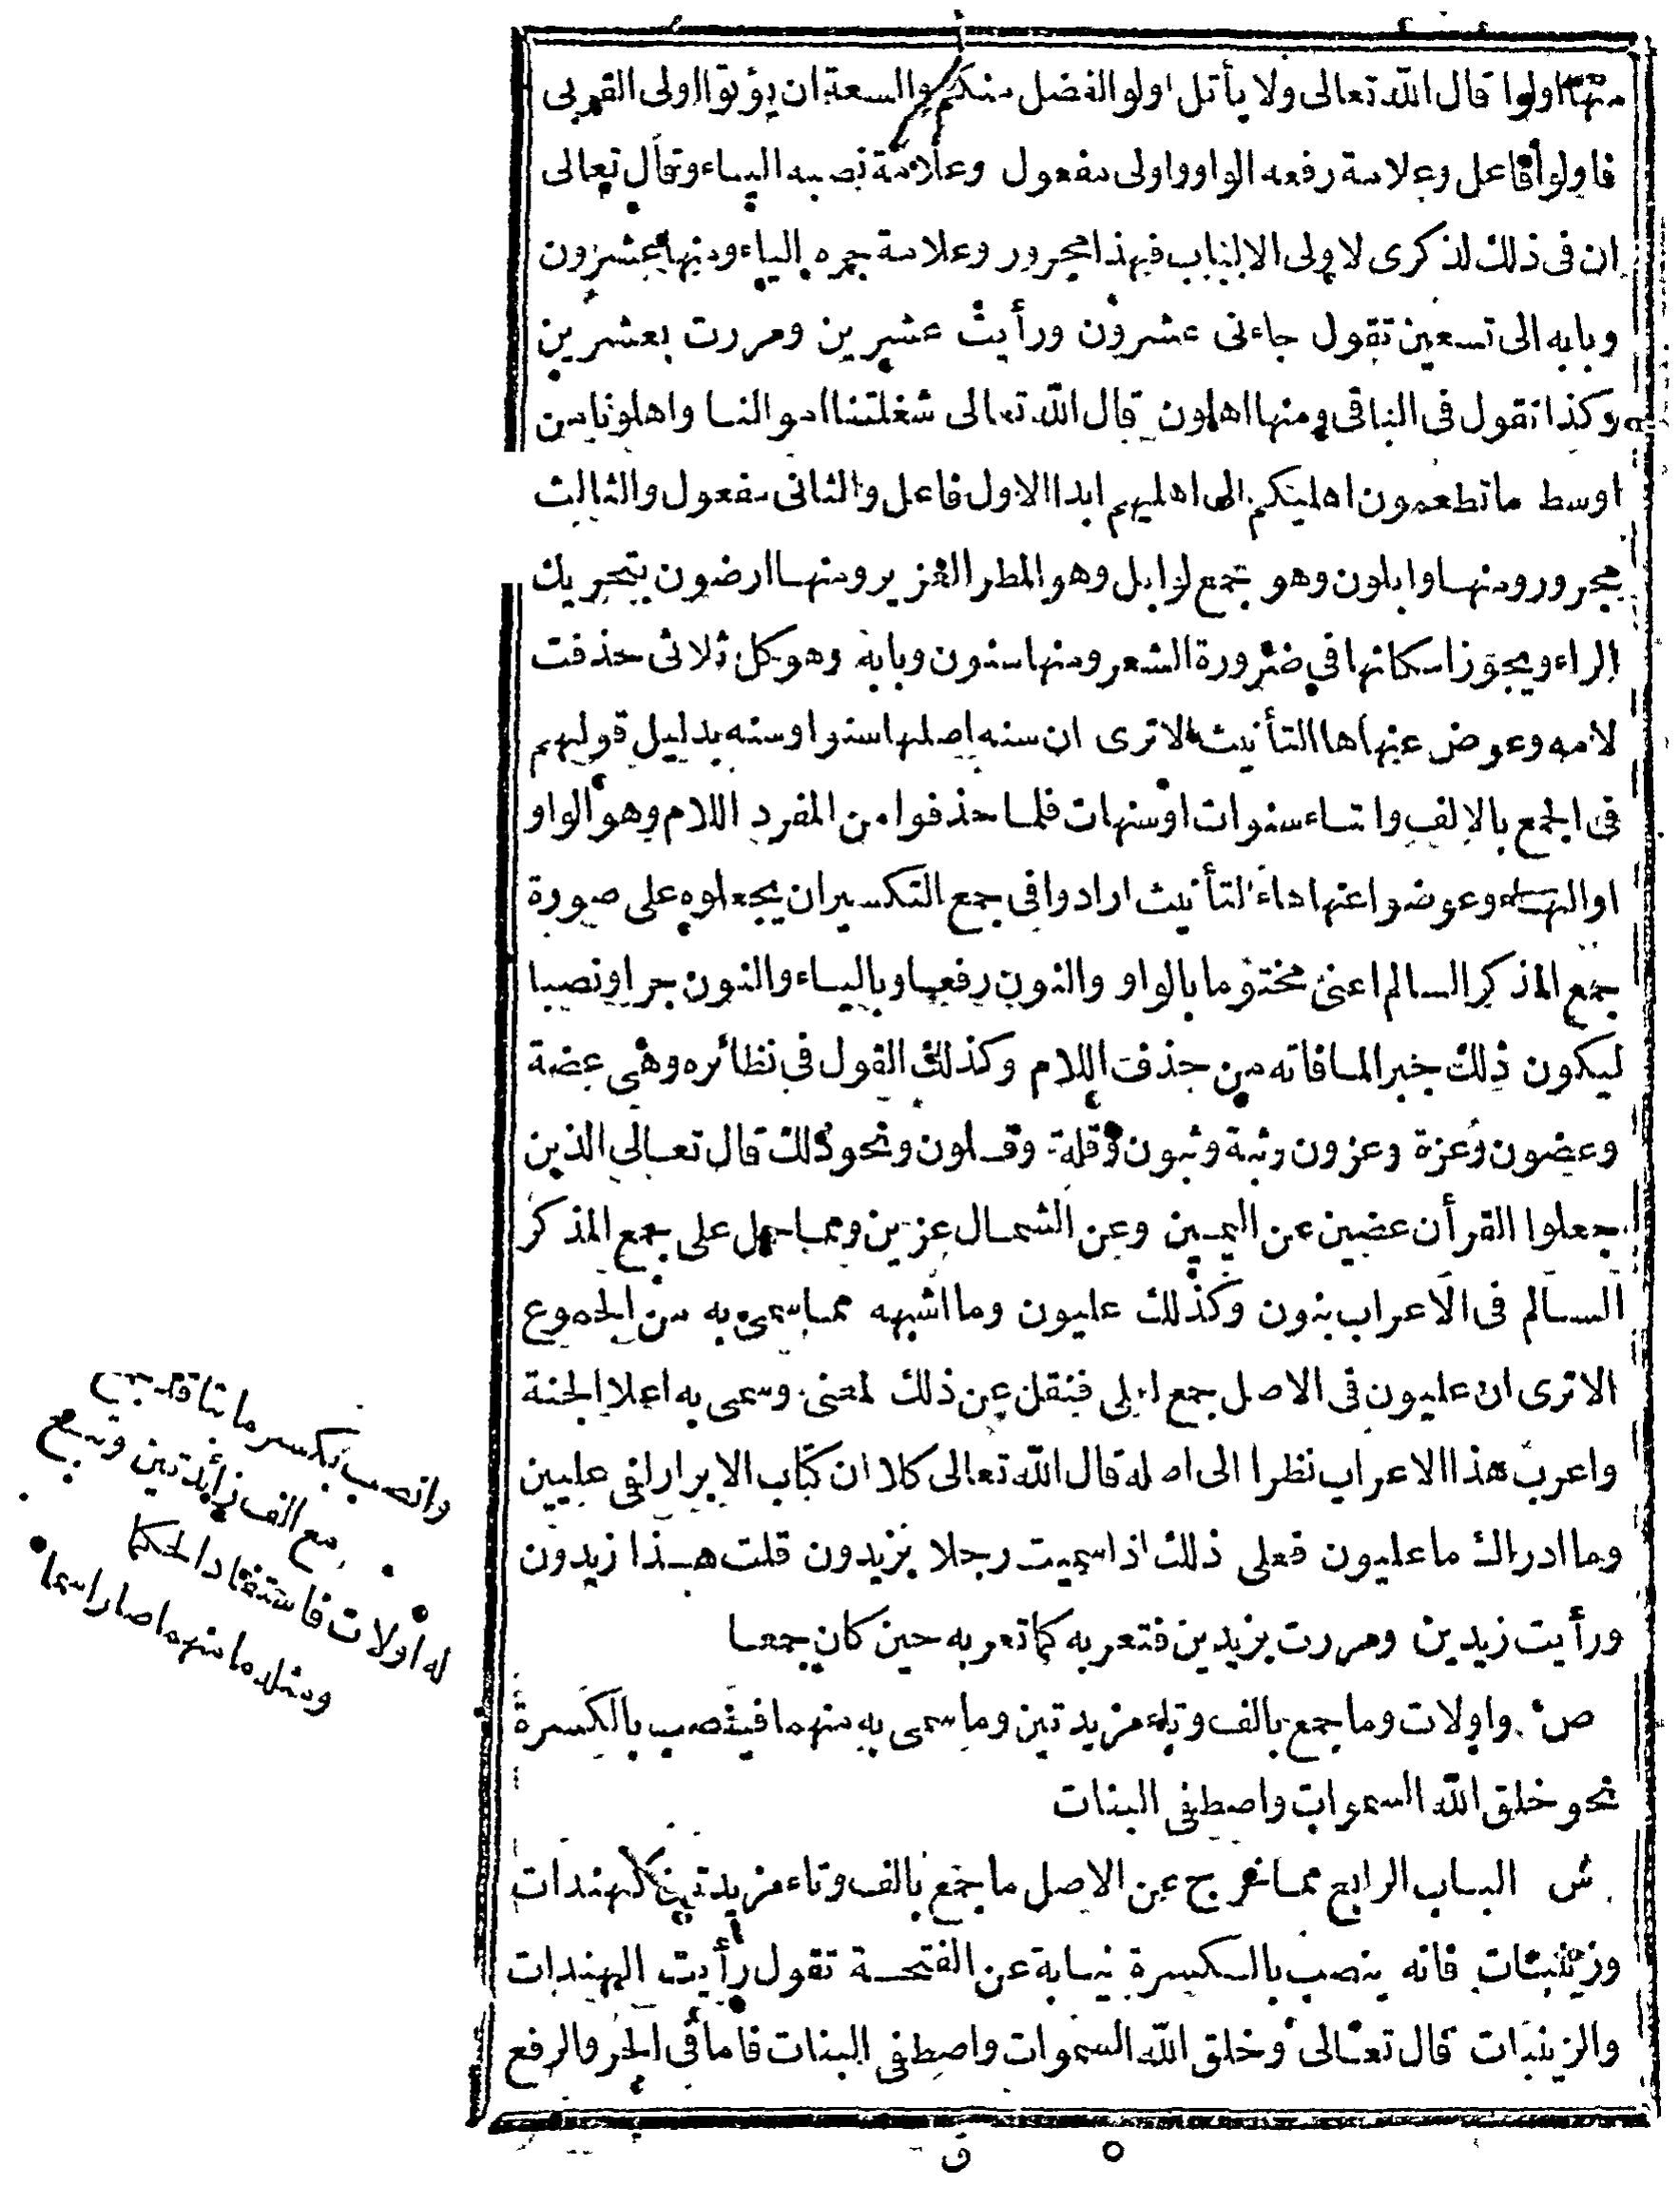 منها اولوا قال الله تعالى ولا يأتل اولو الفضل منكم والسعة ان يؤتوا اولى القربى
فاولوا فاعل وعلامة رفعه الواو واولى مفعول وعلامة نصبه الياء وقال تعالى
ان فى ذلك لذكرى لاولى الالباب فهذا مجرور وعلامة جره الياء ومنها عشرون
وبابه الى تسعين تقول جاءنى عشرون ورأيت عشرين ومررت بعشرين
وكذا تقول فى الباقى ومنها اهلون قال الله تعالى شغلتنا اموالنا واهلونا من
اوسط ما تطعمون اهليكم الى اهليهم ابدا الاول فاعل والثانى مفعول والثالث
مجرور ومنها وابلون وهو جمع لوابل وهو المطر الغزير ومنها ارضون بتحريك
الراء ويجوز اسكانها فى ضرورة الشعر ومنها سنون وبابه وهو كل ثلاثى حذفت
لامه وعوض عنها ها التأنيث الا ترى ان سنه اصلها سنو او سنه بدليل قولهم
فى الجمع بالالف والتاء سنوات او سنهات فلما حذفوا من المفرد اللام وهو الواو
او الهاء وعوضوا عنها هاء التأنيث ارادوا فى جمع التكسير ان يجعلوه على صورة
جمع المذكر السالم اعنى مختوما بالواو والنون رفعا وبالياء والنون جرا ونصبا
ليكون ذلك جبرا لما فاته من حذف اللام وكذلك القول فى نظائره وهى عضة
وعضون وعزة وعزون وثبة وثبون وقلة وقلون ونحو ذلك قال تعالى الذين
جعلوا القرأن عضين عن اليمين وعن الشمال عزين ومما حمل على جمع المذكر
السالم فى الاعراب بنون وكذلك عليون وما اشبهه مما سمى به من الجموع
الا ترى ان عليون فى الاصل جمع لعلى فنقل عن ذلك لمعنى وسمى به اعلا الجنة
واعرب هذا الاعراب نظرا الى اصله قال الله تعالى كلا ان كتاب الابرار لفى عليين
وما ادراك ما عليون فعلى ذلك اذا سميت رجلا بزيدون قلت هذا زيدون
ورأيت زيدين ومررت بزيدين فتعربه كما تعربه حين كان جمعا
ص واولات وما جمع بالف وتاء مزيدتين وما سمى به منهما فينصب بالكسرة
نحو خلق الله السموات واصطفى البنات
ش الباب الرابع مما خرج عن الاصل ما جمع بالف وتاء مزيدتين كهندات
وزينبات فانه ينصب بالكسرة نيابة عن الفتحة تقول رأيت الهندات
والزينبات قال تعالى وخلق الله السموات واصطفى البنات فاما فى الجر والرفع
وانصب بكسر ما بتا قد جمع
مع الف زائدتين وتبع
له أولات فاستفاد الحكما
ومثله ما منهما صار اسما